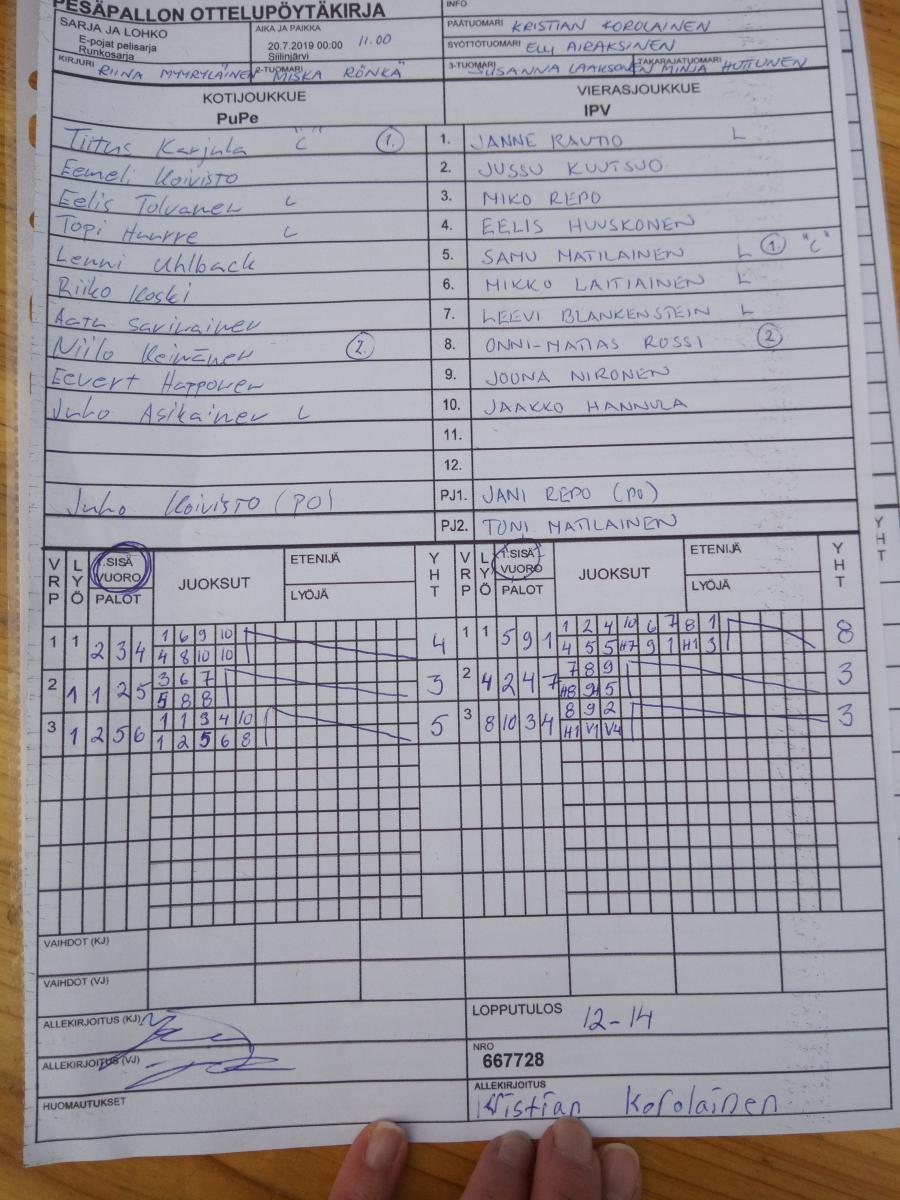 PESÄPALLON OTTELUPÖYTÄKIRJA
INFO
SARJA JA LOHKO
E-pojat pelisarja
Runkosarja
AIKA JA PAIKKA
20.7.2019 00:00 11.00
Siilinjärvi
PÄÄTUOMARI KRISTIAN KOROLAINEN
SYÖTTÖTUOMARI Elly AIRAKSINEN
KIRJURI RIINA MYYRYLÄINEN 2-TUOMARI MISKA RÖNKÄ 3-TUOMARI SUSANNA LAAKSONEN TAKARAJATUOMARI MINJA HUTTUNEN
KOTIJOUKKUE VIERASJOUKKUE
PuPe IPV
Tiitus Karjula "C" 1. 1. JANNE RAUTIO L
Eemeli Koivisto 2. JUSSU KUUTSUO
Eelis Tolvanen L 3. MIKO REPO
Topi Huurre L 4. EELIS HUUSKONEN
Lenni Uhlback 5. SAMU MATILAINEN L 1. "C"
Riiko Koski 6. MIKKO LAITIAINEN L
Aatu Savinainen 7. LEEVI BLANKENSTEIN L
Niilo Keinänen 2. 8. ONNI-MATIAS ROSSI 2
Eevert Happonen 9. JOONA NIRONEN
Juho Asikainen L 10. JAAKKO HANNULA
11.
12.
Juho Koivisto (PO) PJ1. JANI REPO (PO)
PJ2. TONI MATILAINEN
VRP LYÖ 1.SISÄ VUORO PALOT JUOKSUT ETENIJÄ LYÖJÄ YHT VRP LYÖ 1.SISÄ VUORO PALOT JUOKSUT ETENIJÄ LYÖJÄ YHT
1 6 9 10 1 2 4 10 6 7 8 1
1 1 2 3 4 4 1 1 5 9 1 8
4 8 10 10 4 5 5 H7 9 1 H1 3
3 6 7 7 8 9
2 1 1 2 5 3 2 4 2 4 7 3
5 8 8 H8 9H 5
1 1 3 4 10 8 9 2
3 1 2 5 6 5 3 8 10 3 4 3
1 2 5 6 8 H1 V1 V4
VAIHDOT (KJ)
VAIHDOT (VJ)
ALLEKIRJOITUS (KJ) LOPPUTULOS 12-14
ALLEKIRJOITUS (VJ) NRO
667728
HUOMAUTUKSET ALLEKIRJOITUS
Kristian Korolainen
Y
H
T